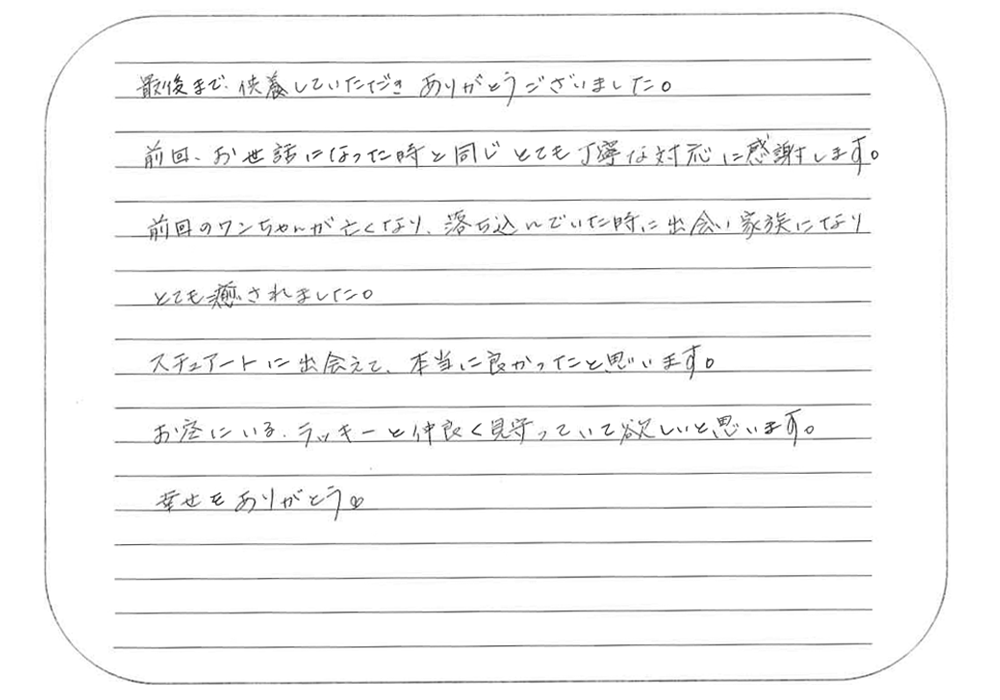 最後まで、供養していただき ありがとうございました。
前回、お世話になった時と同じ とても丁寧な対応に感謝します。
前回のワンちゃんが亡くなり、落ち込んでいた時に出会い家族になり
とても癒されました。
スチュアートに出会えて、本当に良かったと思います。
お空にいる、ラッキーと仲良く見守っていて欲しいと思います。
幸せをありがとう♡